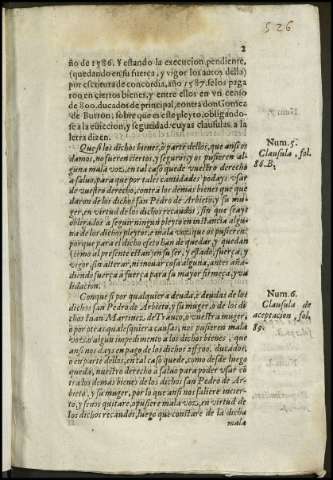 526
2
ño de 1586. Y estando la execucion, pendiente,
(quedando en su fuerça, y vigor los autos della)
por escritura de concordia, año 1587. se los paga
ron en ciertos bienes, y entre ellos en vn censo
de 800. ducados de principal, contra don Gomez
de Butron, sobre que es este pleyto, obligando-
se a la euiccion, y seguridad, cuyas clausulas, a la
letra dizen.
Que si los dichos bienes, ò parte dellos, que ansi os
damos, no fueren ciertos, y seguros, y os pusieren al-
guna mala voz, en tal caso quede vuestro derecho
a saluo, para que por tales cantidades podays vsar
de vuestro derecho, contra los demás bienes que que
daron de los dichos san Pedro de Arbieto, y su mu-
ger, en virtud de los dichos recados, sin que seays
obligados a seguir ningun pleyto en instancia algu-
na de los dichos pleytos, e mala voz, que os pusieren:
porque para el dicho efeto han de quedar, y quedan
como al presente estan, en su ser, y estado, fuerça, y
vigor, sin alterar, ni inouar cosa alguna, antes aña-
diendo fuerça à fuerça para su mayor firmeza, y va
lidacion.
Num. 5.
Clausula, fol.
86. B.
Con que si por qualquier a deuda, è deudas de los
dichos san Pedro de Arbieto, y su muger, ò de los di
chos Iuan Martinez, de Trauco, ò vuestra muger,
ò por otras qualesquiera causas, nos pusieren mala
voz, o algun impedimento a los dichos bienes, que
ansi nos days en pago de los dichos 2[]. ducados,
o en parte dellos, en tal caso quede, como desde luego
queda, nuestro derecho a saluo para poder vsar co
tra los demas bienes de los dichos san Pedro de Ar-
bieto, y su muger, por lo que ansi nos saliere incier-
to, y se nos quitare, o pusiere mala voz, en virtud de
los dichos recados, luego que constare de la dicha
mala
Num. 6.
Clausula de
aceptacion, fol.
89.